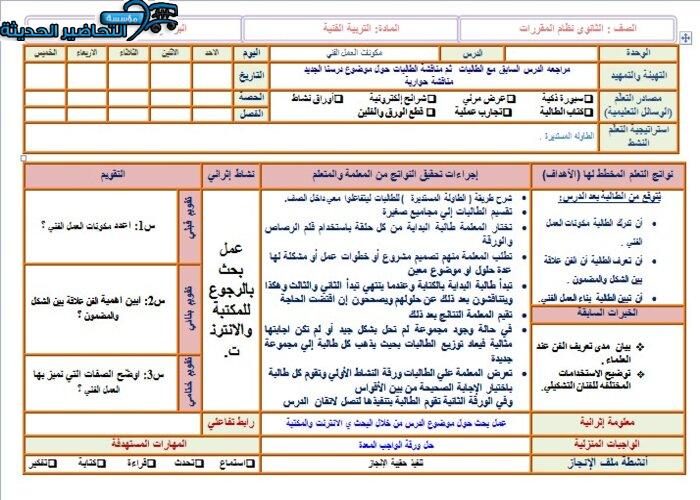 مؤسسة
التحاضير الحديثة
الصف : الثانوي نظام المقررات
المادة: التربية الفنية
الوحدة
الدرس
مكونات العمل الفني
اليوم
الاحد
الاثنين
الثلاثاء
الاربعاء
الخميس
التهيئة والتمهيد
مراجعه الدرس السابق مع الطالبات ثم مناقشة الطالبات حول موضوع درسنا الجديد
مناقشة حوارية
التاريخ
مصادر التعلم
(الوسائل التعليمية)
سبورة ذكية
عرض مرئي
شرائح إلكترونية
أوراق نشاط
كتاب الطالبة
تجارب عملية
قطع الورق والفلين
الحصة
الفصل
استراتيجية التعلم
النشط
الطاوله المستديرة .
نواتج التعلم المخطط لها (الأهداف)
إجراءات تحقيق النواتج من المعلمة والمتعلم
نشاط إثرائي
التقويم
يُتوقع من الطالبة بعد الدرس:
أن تدرك الطالبة مكونات العمل
الفني .
أن تعرف الطالبة أن الفن علاقة
بين الشكل والمضمون .
أن تبين الطالبة بناء العمل الفني .
الخبرات السابقة
بيان مدى تعريف الفن عند
العلماء .
توضيح الاستخدامات
المختلفه للفنان التشكيلي.
شرح طريقة ( الطاولة المستديرة ) للطالبات ليتفاعلوا معي داخل الصف.
تقسيم الطالبات إلي مجاميع صغيرة
تختار المعلمة طالبة البداية من كل حلقة باستخدام قلم الرصاص
والورقة
تطلب المعلمة منهم تصميم مشروع أو خطوات عمل أو مشكلة لها
عدة حلول او موضوع معين
تبدأ طالبة البداية بالكتابة وعندما ينتهي تبدأ الثاني والثالث وهكذا
ويتناقشون بعد ذلك عن حلولهم ويصححون إن اقتضت الحاجة
تقيم المعلمة النتائج بعد ذلك
في حالة وجود مجموعة لم تحل بشكل جيد أو لم تكن اجابتها
مثالية فيعاد توزيع الطالبات بحيث يذهب كل طالبة إلي مجموعة
جديدة
تعرض المعلمة علي الطالبات ورقة النشاط الأولي وتقوم كل طالبة
باختيار الإجابة الصحيحة من بين الأقواس
وفي الورقة الثانية تقوم الطالبة بتنفيذها لتصل لاتقان الدرس
عمل
بحث
بالرجوع
للمكتبة
والانترن
ت.
تقويم قبلي
س1: اعدد مكونات العمل الفني ؟
تقويم بنائي
س2: أبين اهمية الفن علاقة بين الشكل
والمضمون ؟
تقويم ختامي
س3: أوضّح الصفات التي تميز بها
العمل الفني ؟
معلومة إثرائية
عمل بحث حول موضوع الدرس من خلال البحث ي الانترنت والمكتبة
رابط تفاعلي
الواجبات المنزلية
حل ورقة الواجب المعدة
المهارات المستهدفة
أنشطة ملف الإنجاز
تنفيذ حقيبة الإنجاز
استماع
تحدث
قراءة
كتابة
تفكير